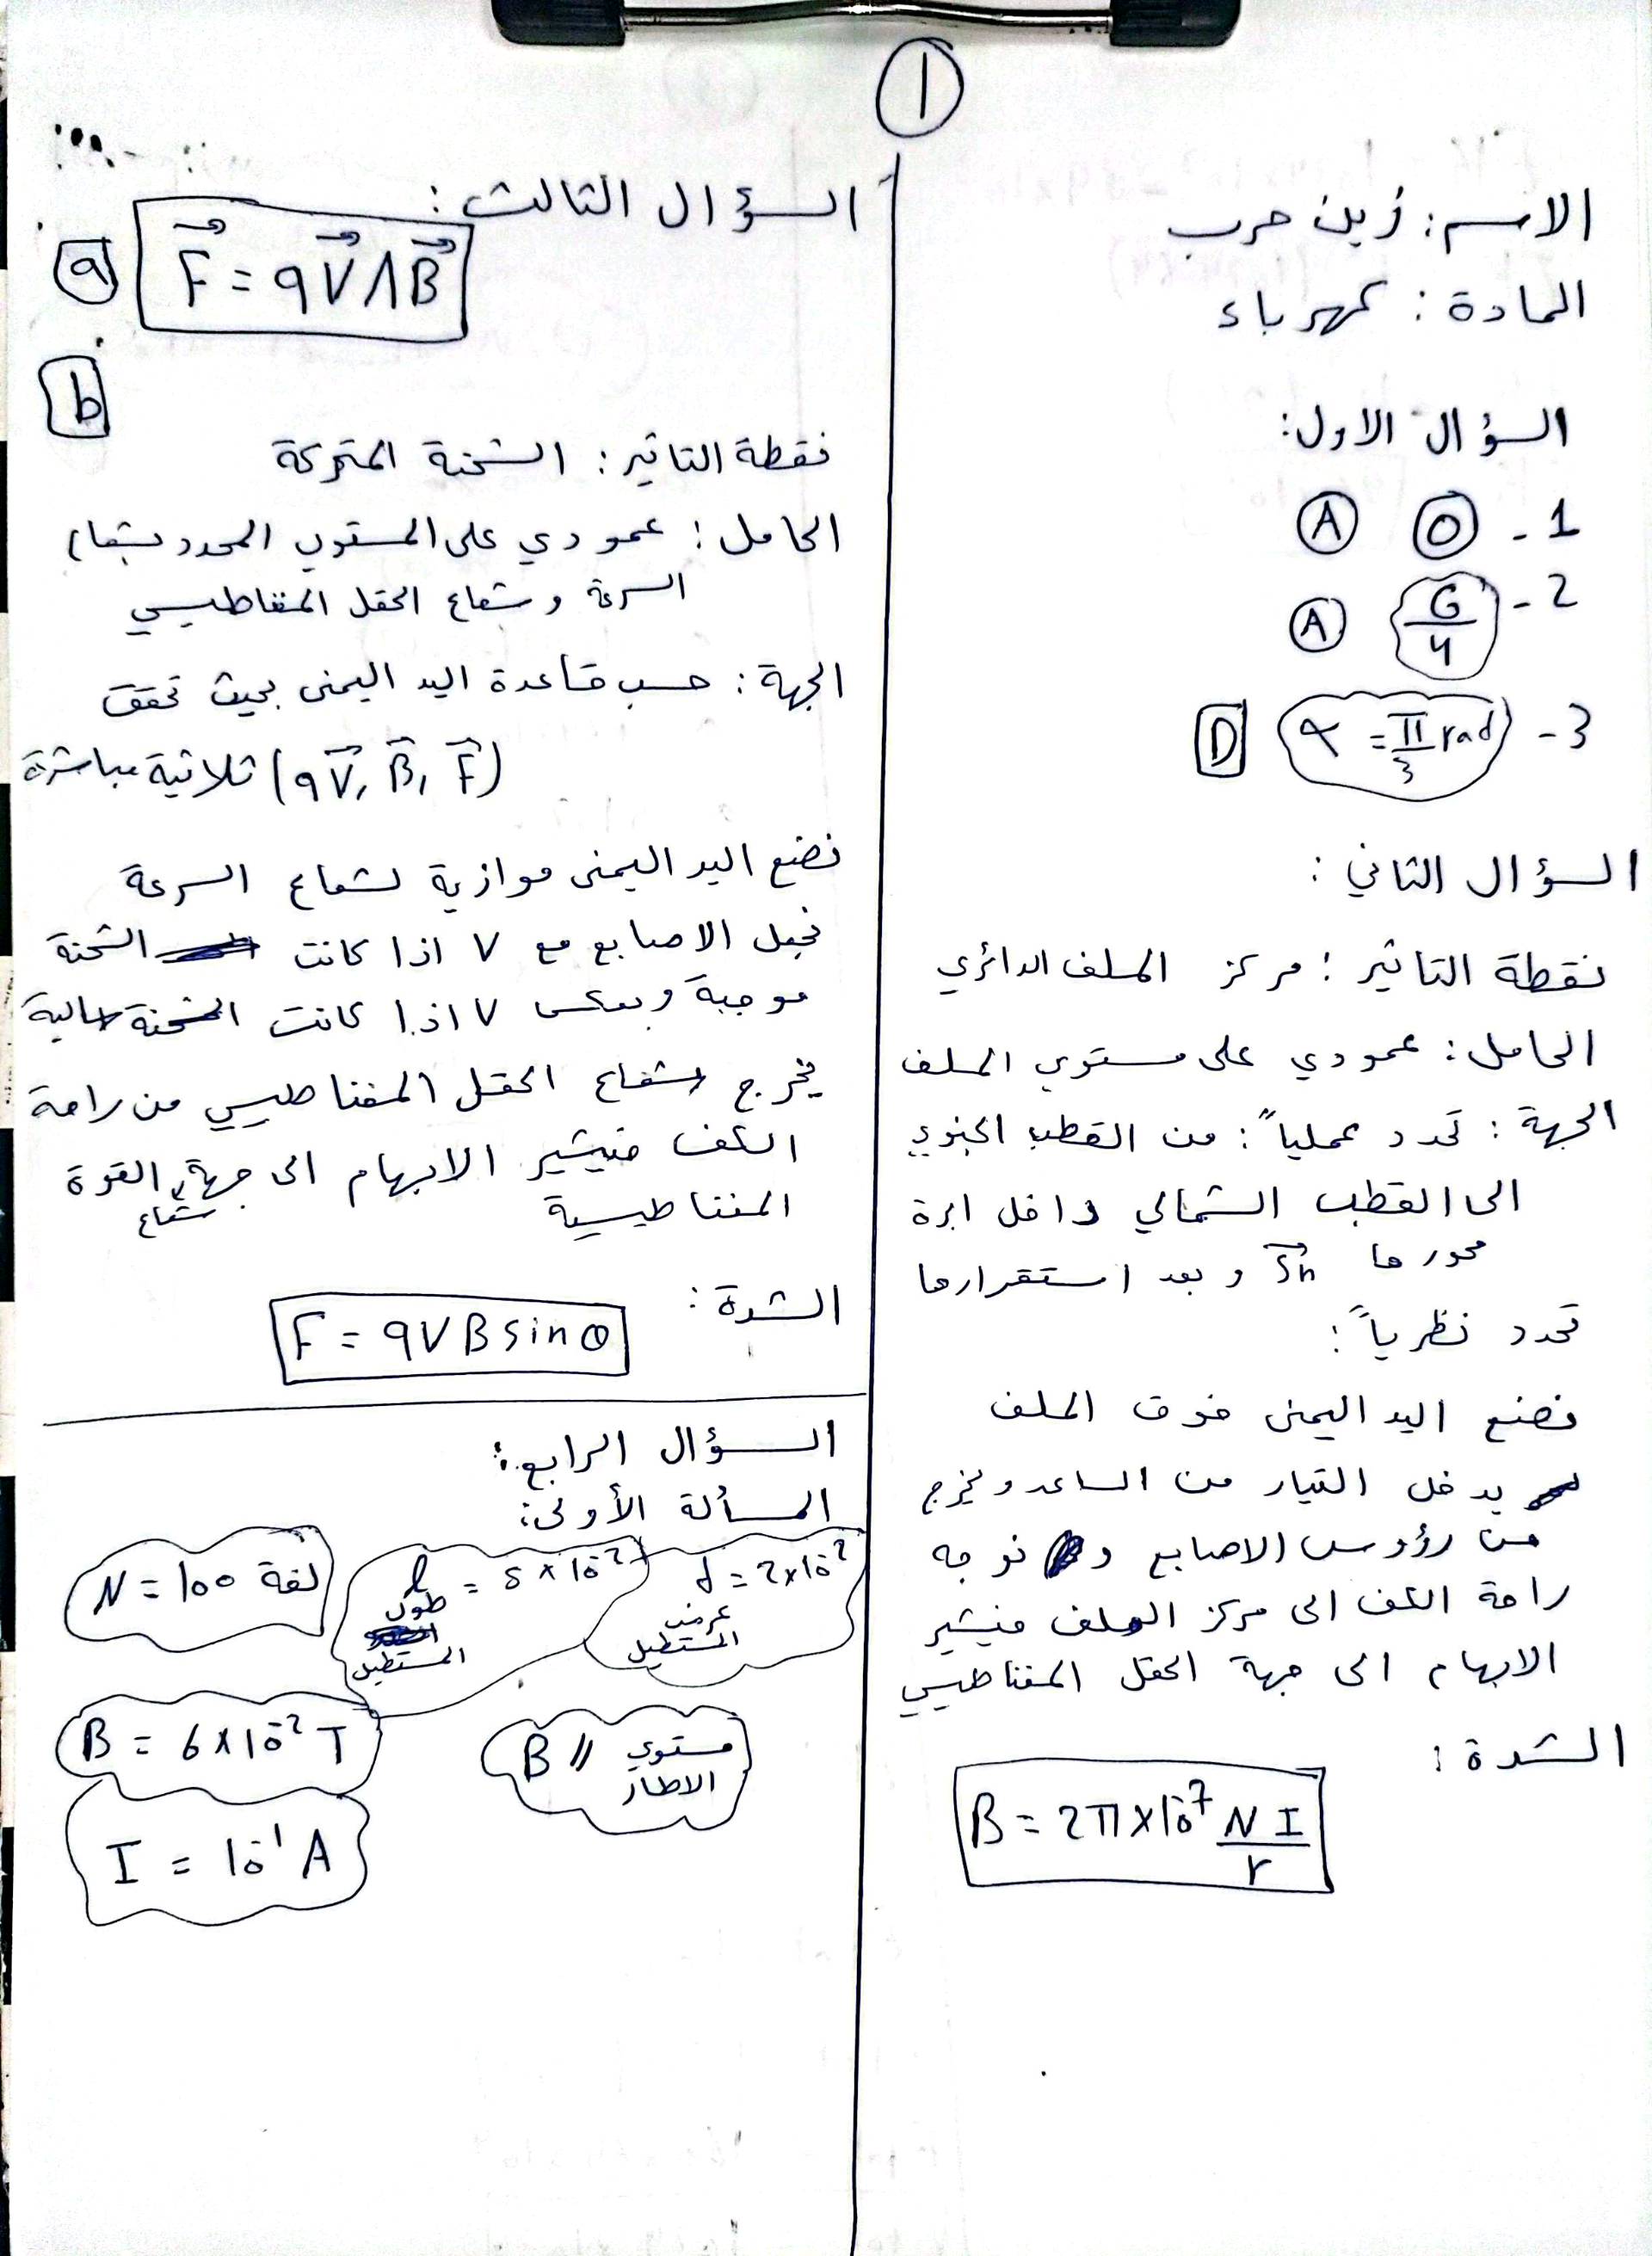 1
الاسم: زين حرب
المادة: كهرباء
السؤال الاول:
1 - 0 A
2 - G/4 A
3 - α = π/3 rad D
السؤال الثاني:
نقطة التاثير: مركز الملف الدائري
الحامل: عمودي على مستوي الملف
الجهة: تحدد عملياً: من القطب الجنوبي
الى القطب الشمالي داخل ابرة
محورها Sn وبعد استقرارها
تحدد نظرياً:
نضع اليد اليمنى فوق الملف
يدخل التيار من الساعد ويخرج
من رؤوس الاصابع و نوجه
راحة الكف الى مركز الملف فيشير
الابهام الى جهة الحقل المغناطيسي
الشدة:
B = 2π×10⁻⁷ NI/r
السؤال الثالث:
a F⃗ = qV⃗ ΛB⃗
b
نقطة التاثير: الشحنة المتحركة
الحامل: عمودي على المستوي المحدد بشعاع
السرعة وشعاع الحقل المغناطيسي
الجهة: حسب قاعدة اليد اليمنى بحيث تحقق
(qV⃗, B⃗, F⃗) ثلاثية مباشرة
نضع اليد اليمنى موازية لشعاع السرعة
نجعل الاصابع مع V اذا كانت الشحنة
موجبة وبعكس V اذا كانت الشحنة سالبة
يخرج شعاع الحقل المغناطيسي من راحة
الكف فيشير الابهام الى جهة شعاع القوة
المغناطيسية
الشدة:
F = qVBsinθ
السؤال الرابع:
المسألة الأولى:
d = 2×10⁻²
عرض
المستطيل
l = 5×10⁻²
طول
المستطيل
N = 100 لفة
B = 6×10⁻² T
B // مستوي
الاطار
I = 10⁻¹ A